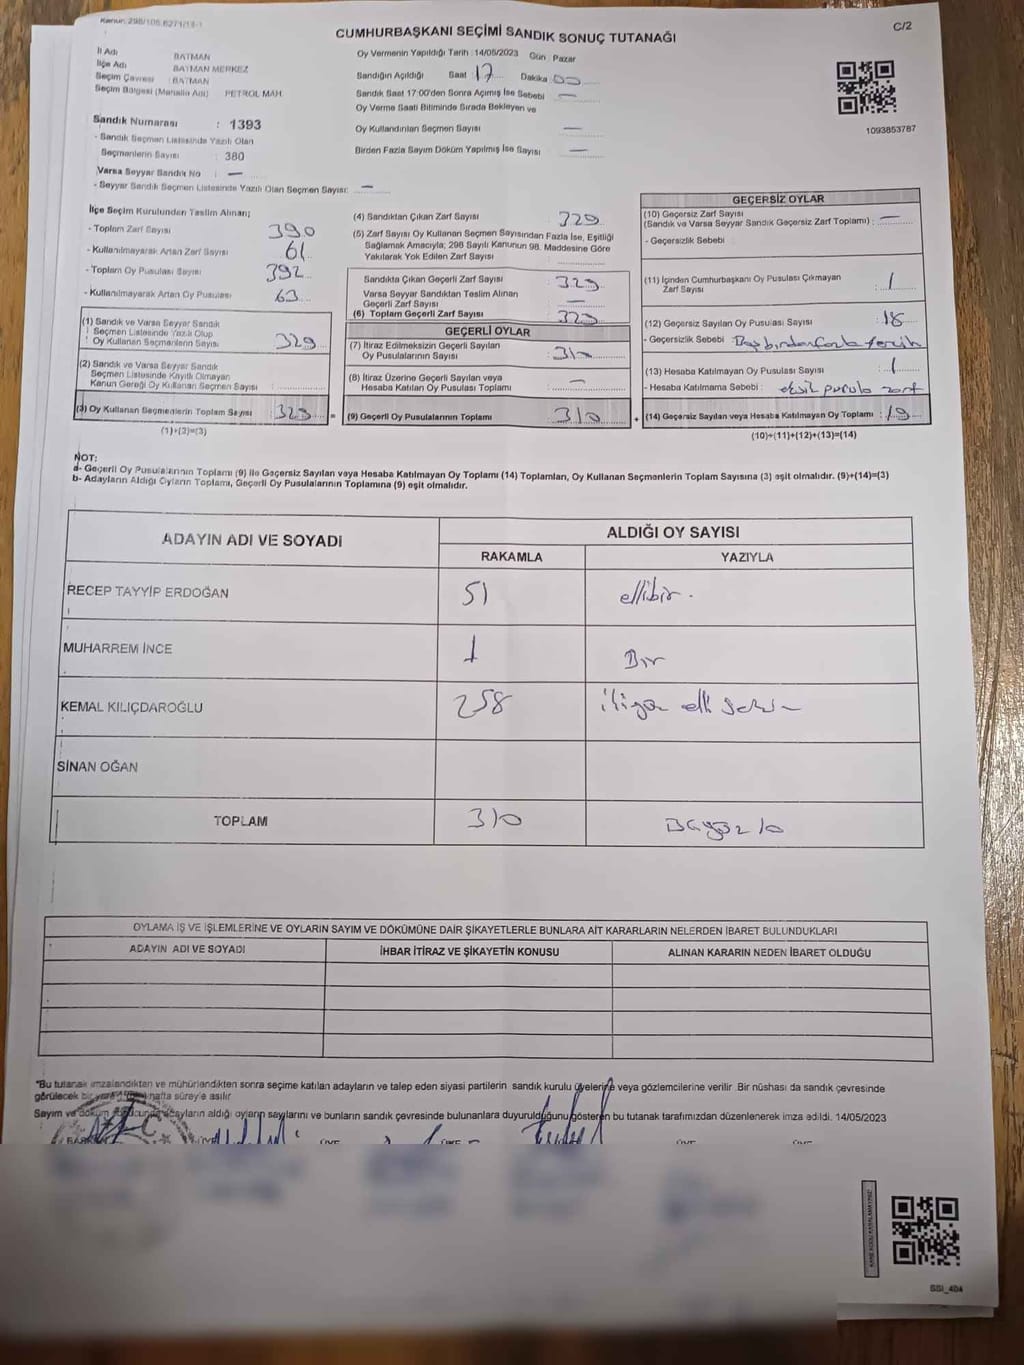 Kanun: 298/105,6271/13-1
CUMHURBAŞKANI SEÇİMİ SANDIK SONUÇ TUTANAĞI
C/2
İl Adı : BATMAN
İlçe Adı : BATMAN MERKEZ
Seçim Çevresi : BATMAN
Seçim Bölgesi (Mahalle Adı) PETROL MAH.
Sandık Numarası : 1393
- Sandık Seçmen Listesinde Yazılı Olan
Seçmenlerin Sayısı : 380
Varsa Seyyar Sandık No : —
- Seyyar Sandık Seçmen Listesinde Yazılı Olan Seçmen Sayısı: —
Oy Vermenin Yapıldığı Tarih : 14/05/2023 Gün : Pazar
Sandığın Açıldığı Saat : 17 Dakika : 00
Sandık Saat 17:00'den Sonra Açılmış İse Sebebi : —
Oy Verme Saati Bitiminde Sırada Bekleyen ve
Oy Kullandırılan Seçmen Sayısı : —
Birden Fazla Sayım Döküm Yapılmış İse Sayısı : —
1093853787
İlçe Seçim Kurulundan Teslim Alınan;
- Toplam Zarf Sayısı : 390
- Kullanılmayarak Artan Zarf Sayısı : 61
- Toplam Oy Pusulası Sayısı : 392
- Kullanılmayarak Artan Oy Pusulası : 63
(1) Sandık ve Varsa Seyyar Sandık
Seçmen Listesinde Yazılı Olup
Oy Kullanan Seçmenlerin Sayısı : 329
(2) Sandık ve Varsa Seyyar Sandık
Seçmen Listesinde Kayıtlı Olmayan
Kanun Gereği Oy Kullanan Seçmen Sayısı :
(3) Oy Kullanan Seçmenlerin Toplam Sayısı : 329 =
(1)+(2)=(3)
(4) Sandıktan Çıkan Zarf Sayısı : 329
(5) Zarf Sayısı Oy Kullanan Seçmen Sayısından Fazla İse, Eşitliği
Sağlamak Amacıyla; 298 Sayılı Kanunun 98. Maddesine Göre
Yakılarak Yok Edilen Zarf Sayısı :
Sandıkta Çıkan Geçerli Zarf Sayısı : 329
Varsa Seyyar Sandıktan Teslim Alınan
Geçerli Zarf Sayısı : —
(6) Toplam Geçerli Zarf Sayısı : 329
GEÇERLİ OYLAR
(7) İtiraz Edilmeksizin Geçerli Sayılan
Oy Pusulalarının Sayısı : 310
(8) İtiraz Üzerine Geçerli Sayılan veya
Hesaba Katılan Oy Pusulası Toplamı : —
(9) Geçerli Oy Pusulalarının Toplamı : 310 +
GEÇERSİZ OYLAR
(10) Geçersiz Zarf Sayısı
(Sandık ve Varsa Seyyar Sandık Geçersiz Zarf Toplamı) : —
- Geçersizlik Sebebi :
(11) İçinden Cumhurbaşkanı Oy Pusulası Çıkmayan
Zarf Sayısı : 1
(12) Geçersiz Sayılan Oy Pusulası Sayısı : 18
- Geçersizlik Sebebi : fazla tercih
(13) Hesaba Katılmayan Oy Pusulası Sayısı : 1
- Hesaba Katılmama Sebebi : eksik pusula zarf
(14) Geçersiz Sayılan veya Hesaba Katılmayan Oy Toplamı : 19
(10)+(11)+(12)+(13)=(14)
NOT:
a- Geçerli Oy Pusulalarının Toplamı (9) ile Geçersiz Sayılan veya Hesaba Katılmayan Oy Toplamı (14) Toplamları, Oy Kullanan Seçmenlerin Toplam Sayısına (3) eşit olmalıdır. (9)+(14)=(3)
b- Adayların Aldığı Oyların Toplamı, Geçerli Oy Pusulalarının Toplamına (9) eşit olmalıdır.
ADAYIN ADI VE SOYADI
ALDIĞI OY SAYISI
RAKAMLA YAZIYLA
RECEP TAYYİP ERDOĞAN 51 ellibir.
MUHARREM İNCE 1 Bir
KEMAL KILIÇDAROĞLU 258 ikiyüz elli sekiz
SİNAN OĞAN
TOPLAM 310 310
OYLAMA İŞ VE İŞLEMLERİNE VE OYLARIN SAYIM VE DÖKÜMÜNE DAİR ŞİKAYETLERLE BUNLARA AİT KARARLARIN NELERDEN İBARET BULUNDUKLARI
ADAYIN ADI VE SOYADI İHBAR İTİRAZ VE ŞİKAYETİN KONUSU ALINAN KARARIN NEDEN İBARET OLDUĞU
"Bu tutanak imzalandıktan ve mühürlendikten sonra seçime katılan adayların ve talep eden siyasi partilerin sandık kurulu üyelerine veya gözlemcilerine verilir. Bir nüshası da sandık çevresinde
görülecek bir yere hafta süreyle asılır.
Sayım ve döküm sonucunda adayların aldığı oyların sayılarını ve bunların sandık çevresinde bulunanlara duyurulduğunu gösteren bu tutanak tarafımızdan düzenlenerek imza edildi. 14/05/2023
SSI_404